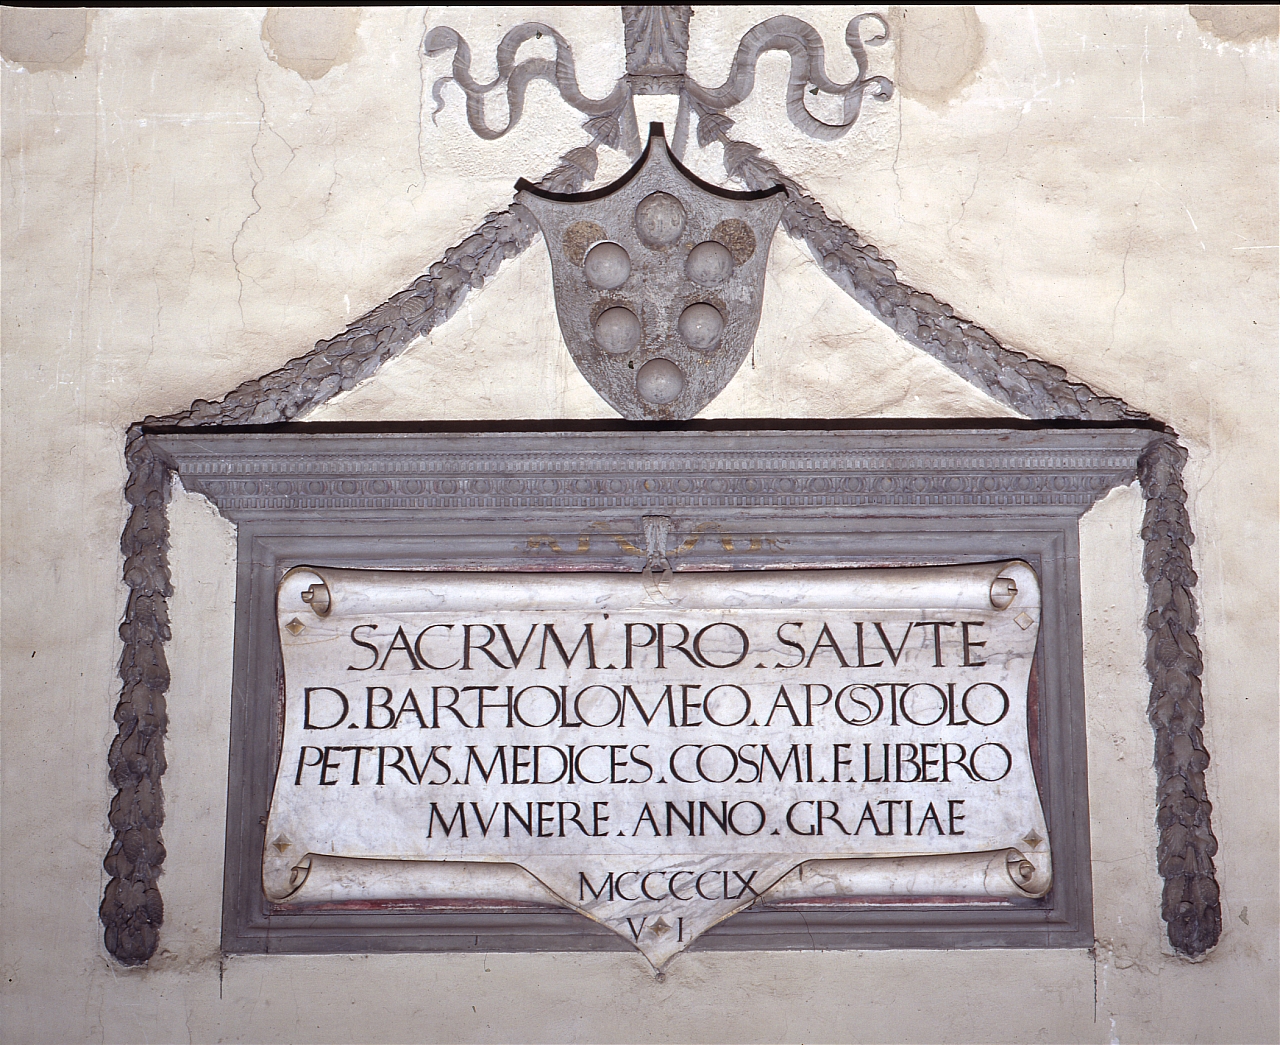 SACRVM.PRO.SALVTE
D.BARTHOLOMEO.APOSTOLO
PETRVS.MEDICES.COSMI.F.LIBERO
MVNERE.ANNO.GRATIAE
MCCCCLX
V I